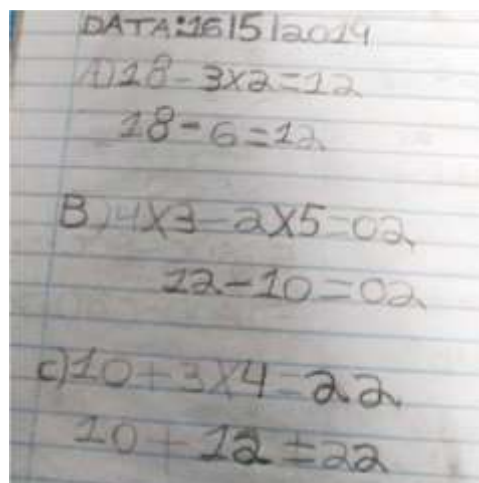 DATA:16/5/2019
A)18-3x2=12
18-6=12
B)4X3-2X5=02
12-10=02
C)10+3X4=22
10+12=22